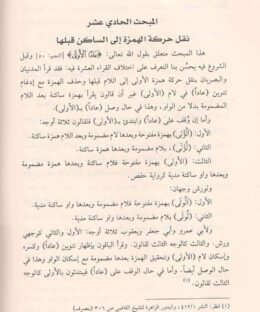 المبحث الحادي عشر
نقل حركة الهمزة إلى الساكن قبلها
هذا المبحث متعلق بقول الله تعالى: ﴿عَادًا الْأُولَى﴾ [النجم: ٥٠] وقبل
الشروع فيه يحسُن بنا التعرف على اختلاف القراء العشرة فيه: فقد قرأ المدنيان
والبصريان بنقل حركة همزة الأولى إلى اللام وحذف الهمزة مع إدغام
تنوين (عاداً) في لام (الأولى) غير أن قالون يقرأ بهمزة ساكنة بعد اللام
المضمومة بدلا من الواو، وذلك في حال وصل (عاداً) بـ(الأولى).
وأما إن وُقف على (عاداً) وابتدئ بـ(الأولى) فلقالون ثلاثة أوجه:
الأول: (أَلُؤْلَى) بهمزة مفتوحة فلام مضمومة وبعدها همزة ساكنة.
الثاني: (لُؤْلَى)، بلام مضمومة وبعدها همزة ساكنة.
الثالث: (الأُولى) بهمزة مفتوحة فلام ساكنة وبعدها همزة مضمومة
وبعدها واو ساكنة مدية كرواية حفص.
ولورش وجهان:
الأول: (أَلُولَى) بهمزة مفتوحة فلام مضمومة وبعدها واو ساكنة مدية.
الثاني: (لُولَى) بلام مضمومة وبعدها واو ساكنة مدية.
ولأبي عمرو وأبي جعفر ويعقوب ثلاثة أوجه: الأول والثاني كوجهي
ورش، والثالث كالوجه الثالث لقالون. وقرأ الباقون بإظهار تنوين (عاداً) وكسره
وإسكان لام (الأولى) وتحقيق الهمزة بعدها مع إسكان الواو، وهذا في
حال الوصل أيضاً. وأما في حال الوقف على (عاداً) فيبتدئون بالأولى كالوجه
الثالث لقالون.(١)
(١) انظر: النشر ٤١٢/١، والبدور الزاهرة للشيخ القاضي ص ٣٠٦ (بتصرف)